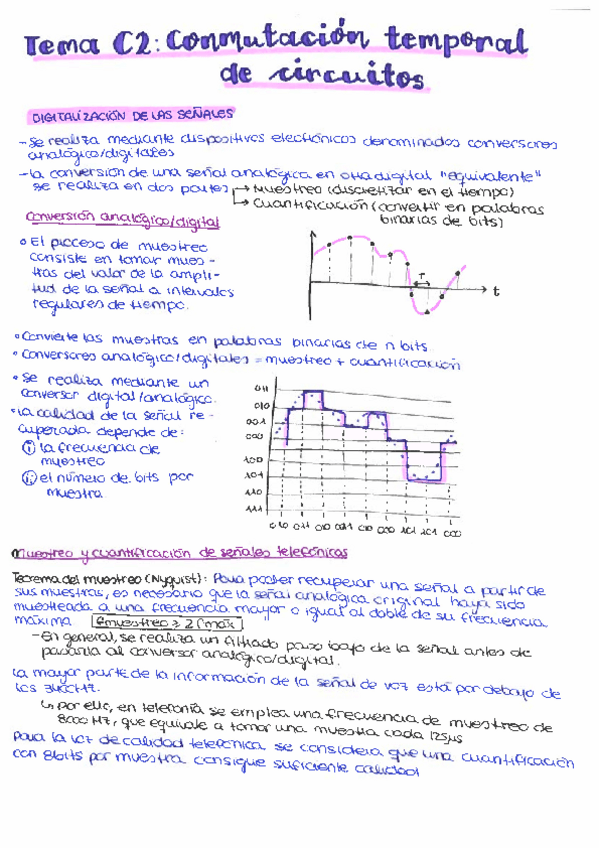 Tema C2: Conmutación temporal
de circuitos
DIGITALIZACIÓN DE LAS SEÑALES
-Se realiza mediante dispositivos electrónicos denominados conversores
analógico/digitales
-La conversión de una señal analógica en otra digital "equivalente"
se realiza en dos partes → Muestreo (discretizar en el tiempo)
→ Cuantificación (convertir en palabras
binarias de bits)
Conversión analógico/digital
El proceso de muestreo
consiste en tomar mues-
tras del valor de la ampli-
tud de la señal a intervalos
regulares de tiempo.
T
t
Convierte las muestras en palabras binarias de n bits
Conversores analógico/digitales = muestreo + cuantificación
Se realiza mediante un
conversor digital/analógico.
La calidad de la señal re-
cuperada depende de:
i) la frecuencia de
muestreo
ii) el número de bits por
muestra
011
010
001
000
100
101
110
111
010 011 010 001 010 000 101 101 000
Muestreo y cuantificación de señales telefónicas
Teorema del muestreo (Nyquist): Para poder recuperar una señal a partir de
sus muestras, es necesario que la señal analógica original haya sido
muestreada a una frecuencia mayor o igual al doble de su frecuencia
máxima fmuestreo ≥ 2 fmáx
-En general, se realiza un filtrado paso bajo de la señal antes de
pasarla al conversor analógico/digital.
La mayor parte de la información de la señal de voz está por debajo de
los 3400Hz.
↳ por ello, en telefonía se emplea una frecuencia de muestreo de
8000 Hz, que equivale a tomar una muestra cada 125μs
Para la voz de calidad telefónica, se considera que una cuantificación
con 8bits por muestra consigue suficiente calidad